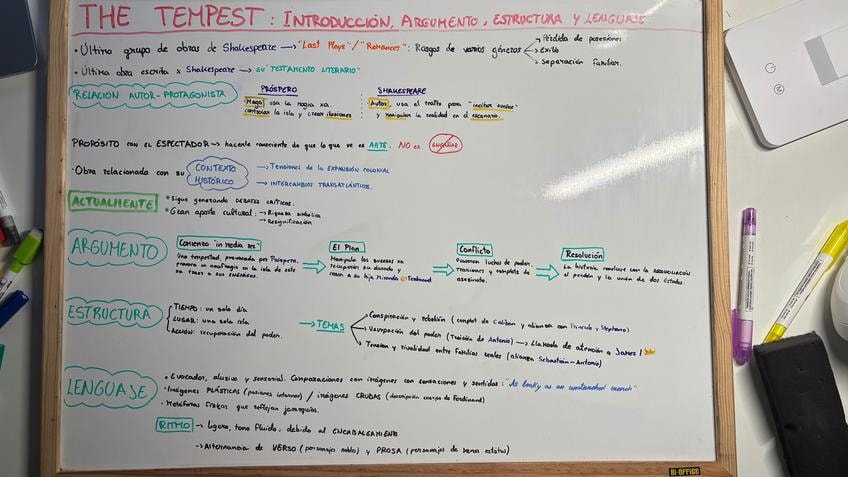 THE TEMPEST : INTRODUCCIÓN, ARGUMENTO, ESTRUCTURA Y LENGUAJE.
• Último grupo de obras de Shakespeare → "Last Plays"/"Romances": Rasgos de varios géneros
→ Pérdida de posesiones
→ Exilio
→ Separación familiar.
• Última obra escrita x Shakespeare → su "TESTAMENTO LITERARIO"
RELACIÓN AUTOR-PROTAGONISTA
PRÓSPERO
Mago usa la magia xa.
controlar la isla y crear ilusiones
SHAKESPEARE
Autor, usa el teatro para
y manipular la realidad en el escenario.
PROPÓSITO CON EL ESPECTADOR → hacerle consciente de que lo que ve es ARTE. NO es ENGAÑAR
• Obra relacionada con su CONTEXTO HISTÓRICO
→ Tensiones de la EXPANSIÓN COLONIAL
→ INTERCAMBIOS TRANSATLÁNTICOS.
ACTUALMENTE
• Sigue generando DEBATES CRÍTICOS.
• Gran aporte cultural: → Riqueza simbólica
→ Resignificación
ARGUMENTO
Comienzo "in media res"
Una tempestad, provocada por Próspero,
provoca un naufragio en la isla de este
xa traer a sus enemigos.
El Plan
Manipula los sucesos xa
recuperar su ducado y
casar a su hija Miranda c Ferdinand
Conflicto
luchas de poder,
traiciones y complots de
asesinato.
Resolución
La historia concluye con la RECONCILIACIÓN
el perdón y la unión de dos Estados.
ESTRUCTURA
TIEMPO: un solo día
LUGAR: una sola isla
ACCIÓN: recuperación del poder.
→ TEMAS
Conspiración y rebelión (complot de Caliban y alianza con Trinculo y Stephano)
Usurpación del poder (Traición de Antonio) → Llamada de atención a James I
Tensión y rivalidad entre Familias reales (alianza Sebastián-Antonio)
LENGUAJE
• Evocador, alusivo y sensorial. Comparaciones con imágenes con sensaciones y sentidos: "As leaky as an unstanched wench"
• Imágenes PLÁSTICAS (pasiones internas) / IMÁGENES CRUDAS (descripción cuerpo de Ferdinand)
• Metáforas que reflejan jerarquía.
RITMO → Ligero, tono fluido, debido al ENCABALGAMIENTO
→ Alternancia de VERSO (personajes noble) y PROSA (personajes de menor estatus)
Bi-OFFICE